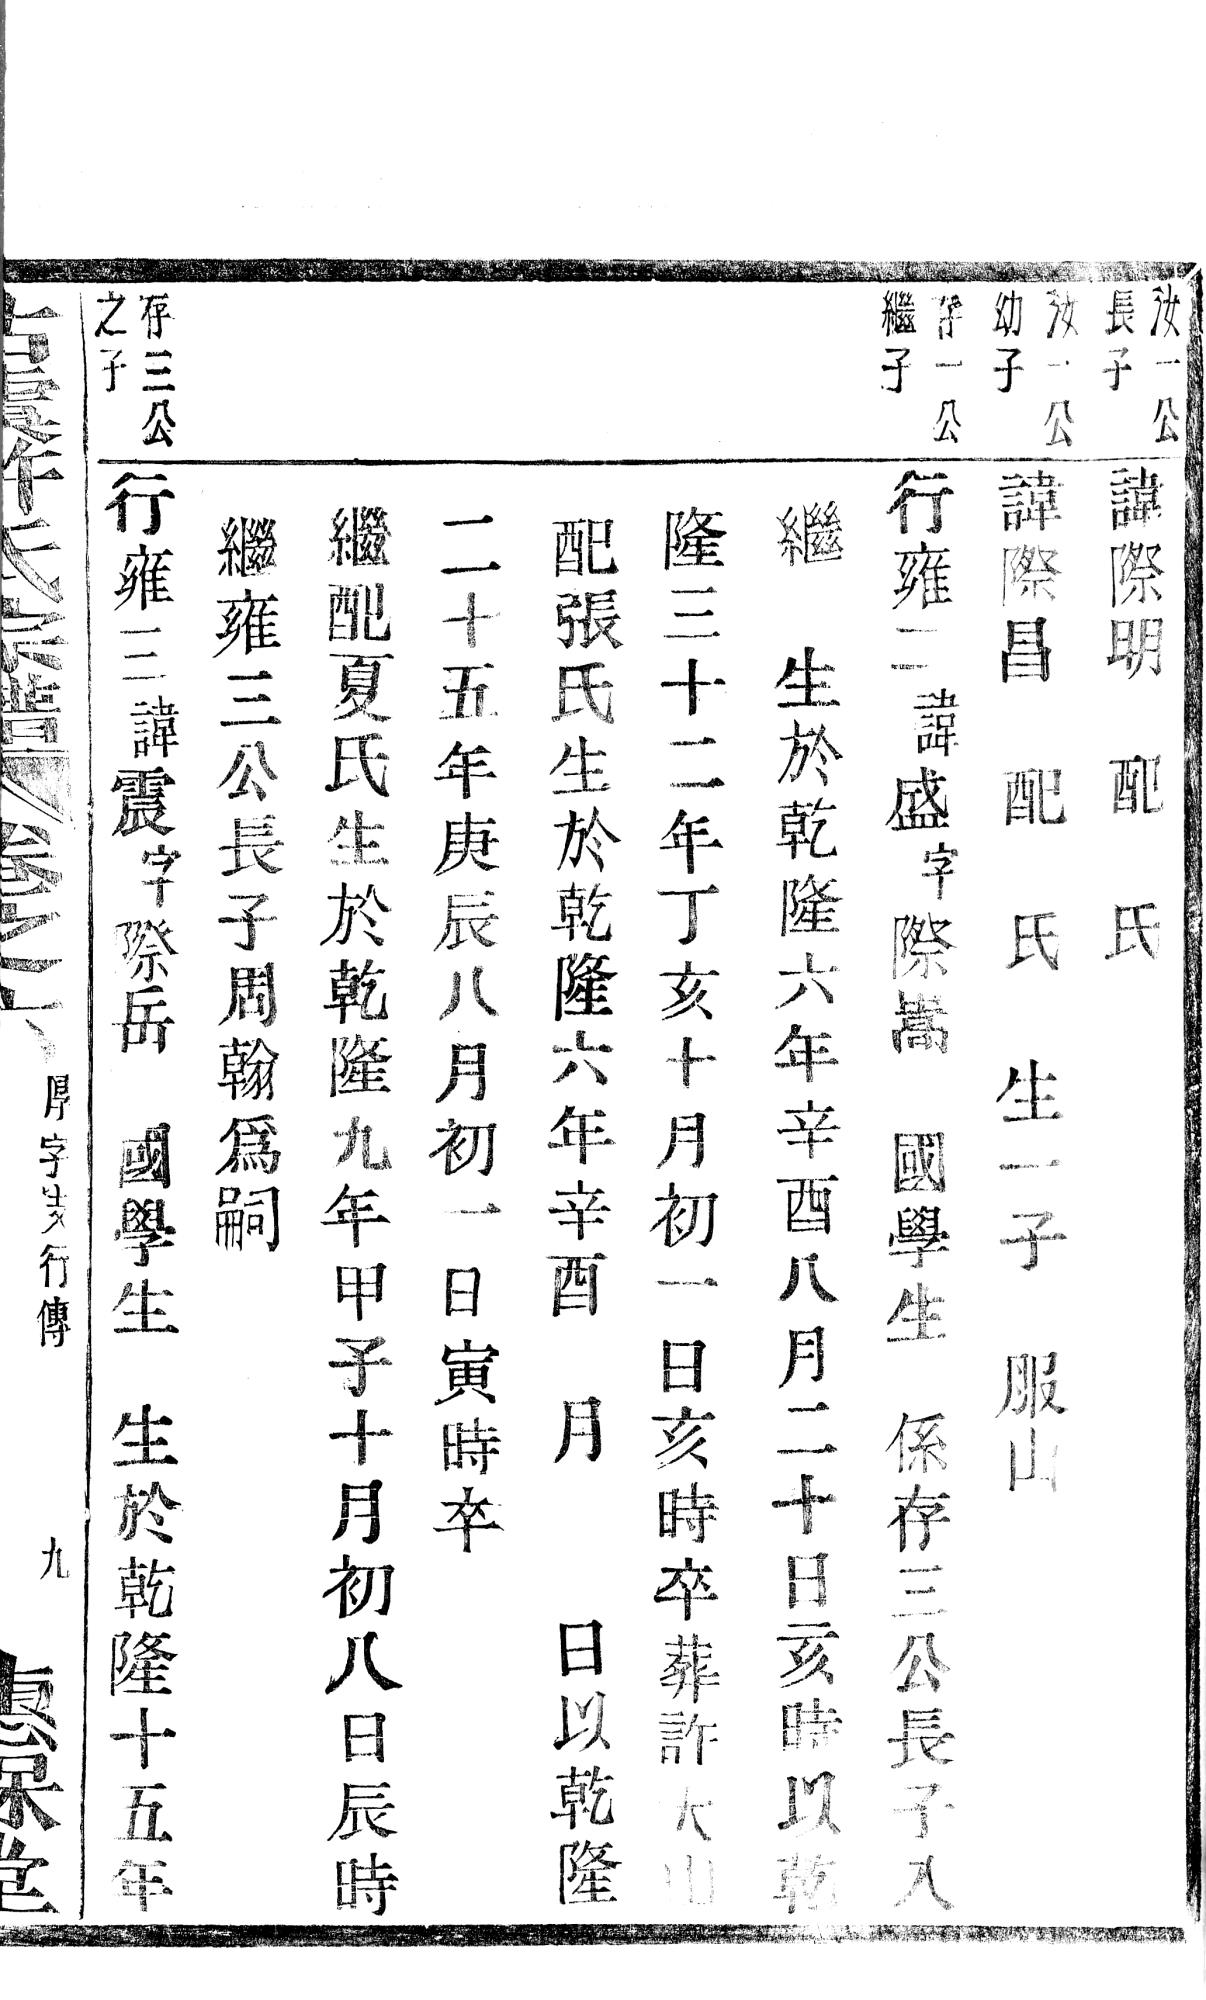 汝一公
長子
諱際明　配　氏
汝一公
幼子
諱際昌　配　氏　生一子　服山
存一公
繼子
行雍二諱盛字際嵩　國學生　係存三公長子入
繼　生於乾隆六年辛酉八月二十日亥時以乾
隆三十二年丁亥十月初一日亥時卒葬許大山
配張氏生於乾隆六年辛酉　月　　日以乾隆
二十五年庚辰八月初一日寅時卒
繼配夏氏生於乾隆九年甲子十月初八日辰時
繼雍三公長子周翰爲嗣
存三公
之子
行雍三諱震字際岳　國學生　生於乾隆十五年
氏宗譜 卷之六
字 行傳
九
堂